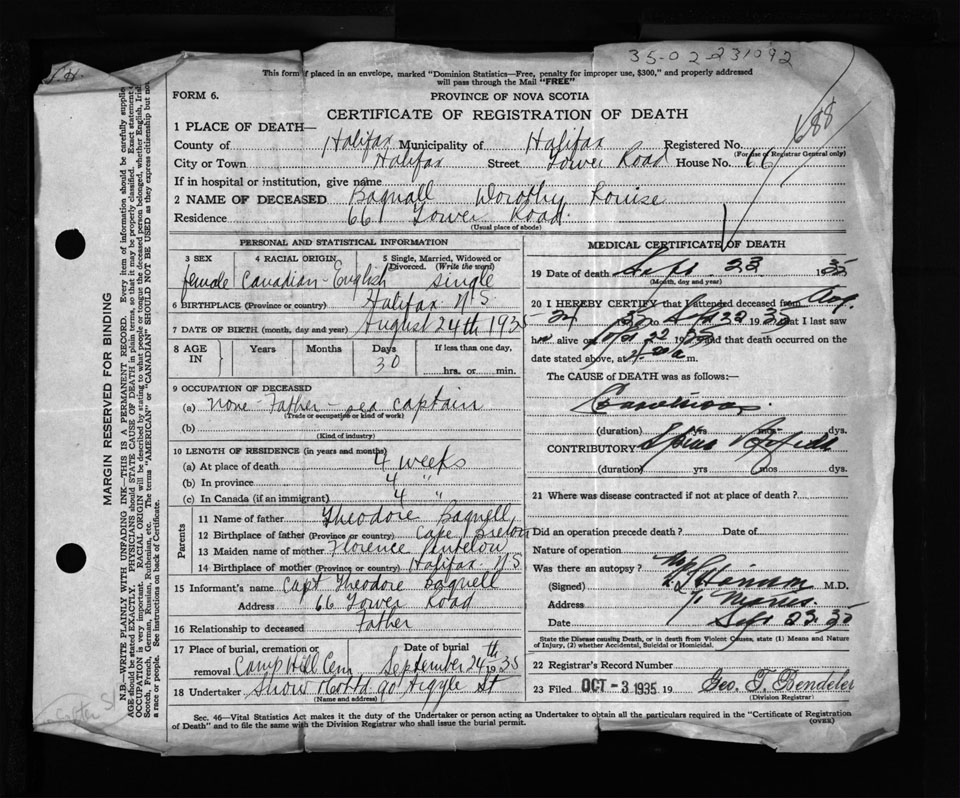 35-02-231092
This form if placed in an envelope, marked "Dominion Statistics—Free, penalty for improper use, $300," and properly addressed
will pass through the Mail "FREE"
FORM 6.
PROVINCE OF NOVA SCOTIA
CERTIFICATE OF REGISTRATION OF DEATH
688
1 PLACE OF DEATH—
County of Halifax Municipality of Halifax Registered No.
(For use of Registrar General only)
City or Town Halifax Street Tower Road House No. 66
If in hospital or institution, give name
2 NAME OF DECEASED Bagnall Dorothy Louise
Residence 66 Tower Road.
(Usual place of abode)
PERSONAL AND STATISTICAL INFORMATION
3 SEX 4 RACIAL ORIGIN 5 Single, Married, Widowed or Divorced. (Write the word)
female Canadian-English single
6 BIRTHPLACE (Province or country) Halifax N S
7 DATE OF BIRTH (month, day and year) August 24th 1935
8 AGE IN Years Months Days If less than one day,
30 hrs. or min.
9 OCCUPATION OF DECEASED
(a) none - Father - sea captain
(Trade or occupation or kind of work)
(b)
(Kind of industry)
10 LENGTH OF RESIDENCE (in years and months)
(a) At place of death 4 weeks
(b) In province 4 "
(c) In Canada (if an immigrant) 4 "
Parents
11 Name of father Theodore Bagnell
12 Birthplace of father (Province or country) Cape Breton
13 Maiden name of mother Florence
14 Birthplace of mother (Province or country) Halifax N S
15 Informant's name Capt Theodore Bagnell
Address 66 Tower Road
16 Relationship to deceased Father
17 Place of burial, cremation or removal Camp Hill Cem Date of burial September 24th 1935
18 Undertaker Snow 90 Argyle St
(Name and address)
MEDICAL CERTIFICATE OF DEATH
19 Date of death Sept. 23 1935
(Month, day and year)
20 I HEREBY CERTIFY that I attended deceased from Aug.
24 35 to Sept 22 1935 that I last saw
her alive on Sept 22 1935 and that death occurred on the
date stated above, at m.
The CAUSE of DEATH was as follows:—
(duration) yrs mos dys.
CONTRIBUTORY Spina Bifida
(duration) yrs mos dys.
21 Where was disease contracted if not at place of death?
Did an operation precede death? Date of
Nature of operation
Was there an autopsy? No
(Signed) M.D.
Address
Date Sept 23 35
State the Disease causing Death, or in death from Violent Causes, state (1) Means and Nature
of Injury, (2) whether Accidental, Suicidal or Homicidal.
22 Registrar's Record Number
23 Filed OCT - 3 1935 19 Geo. T. Bendeler
(Division Registrar)
Sec. 46—Vital Statistics Act makes it the duty of the Undertaker or person acting as Undertaker to obtain all the particulars required in the "Certificate of Registration
of Death" and to file the same with the Division Registrar who shall issue the burial permit.
(OVER)
MARGIN RESERVED FOR BINDING
N.B.—WRITE PLAINLY WITH UNFADING INK—THIS IS A PERMANENT RECORD. Every item of information should be carefully supplied
AGE should be stated EXACTLY. PHYSICIANS should STATE CAUSE OF DEATH in plain terms, so that it may be properly classified. Exact statement
OCCUPATION is very important. RACIAL ORIGIN will be described by stating to what people or tongue the deceased person belonged, whether English, Irish
Scotch, French, German, Russian, Ruthenian, etc. The terms "AMERICAN" or "CANADIAN" SHOULD NOT BE USED as they express citizenship but not
a race or people. See instructions on back of Certificate.